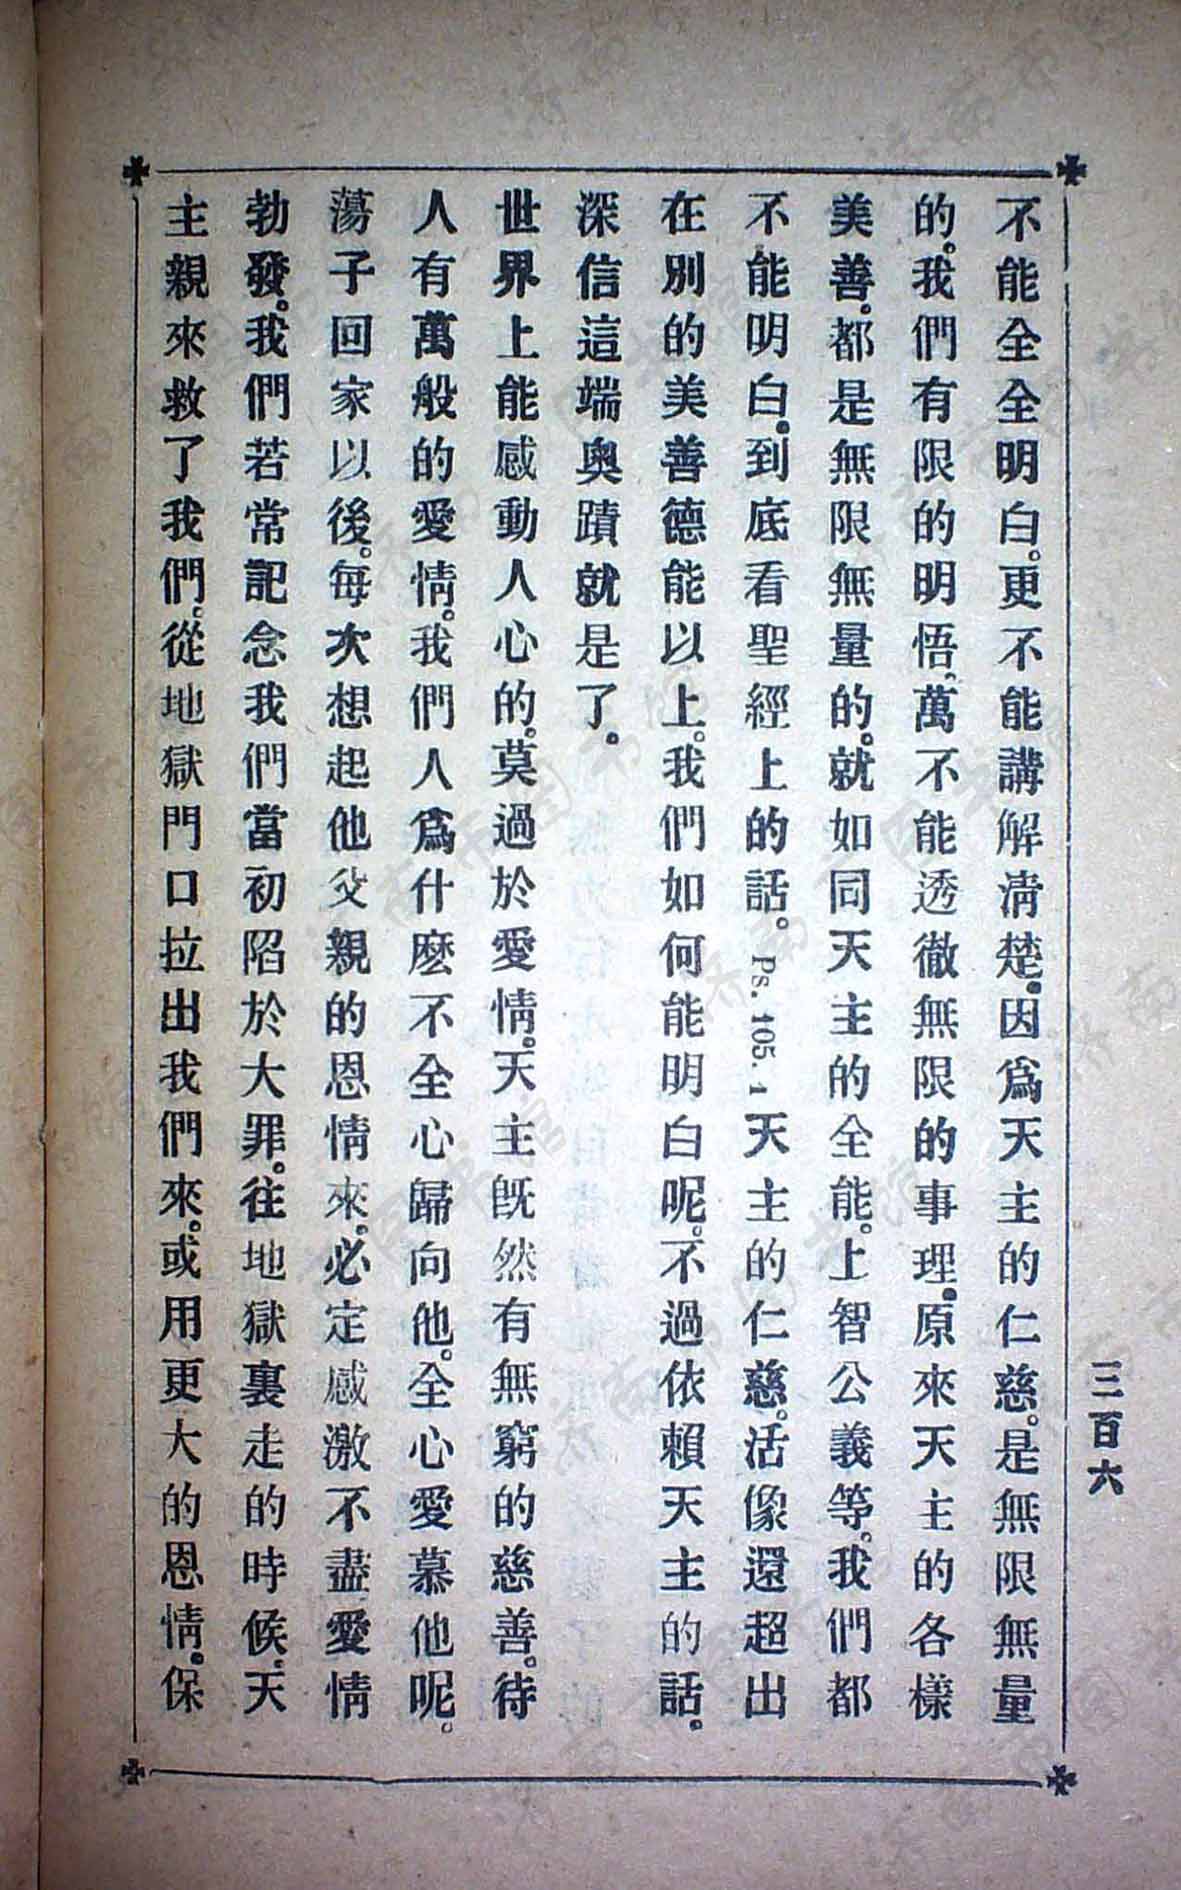 不能全全明白。更不能講解淸楚。因爲天主的仁慈。是無限無量
的。我們有限的明悟。萬不能透徹無限的事理。原來天主的各樣
美善。都是無限無量的。就如同天主的全能。上智公義等。我們都
不能明白。到底看聖經上的話。Ps. 105. 1天主的仁慈。活像還超出
在別的美善德能以上。我們如何能明白呢。不過依賴天主的話。
深信這端奧蹟就是了。
世界上能感動人心的。莫過於愛情。天主旣然有無窮的慈善。待
人有萬般的愛情。我們人爲什麽不全心歸向他。全心愛慕他呢。
蕩子回家以後。每次想起他父親的恩情來。必定感激不盡愛情
勃發。我們若常記念我們當初陷於大罪。往地獄裏走的時候。天
主親來救了我們。從地獄門口拉出我們來。或用更大的恩情。保
三百六